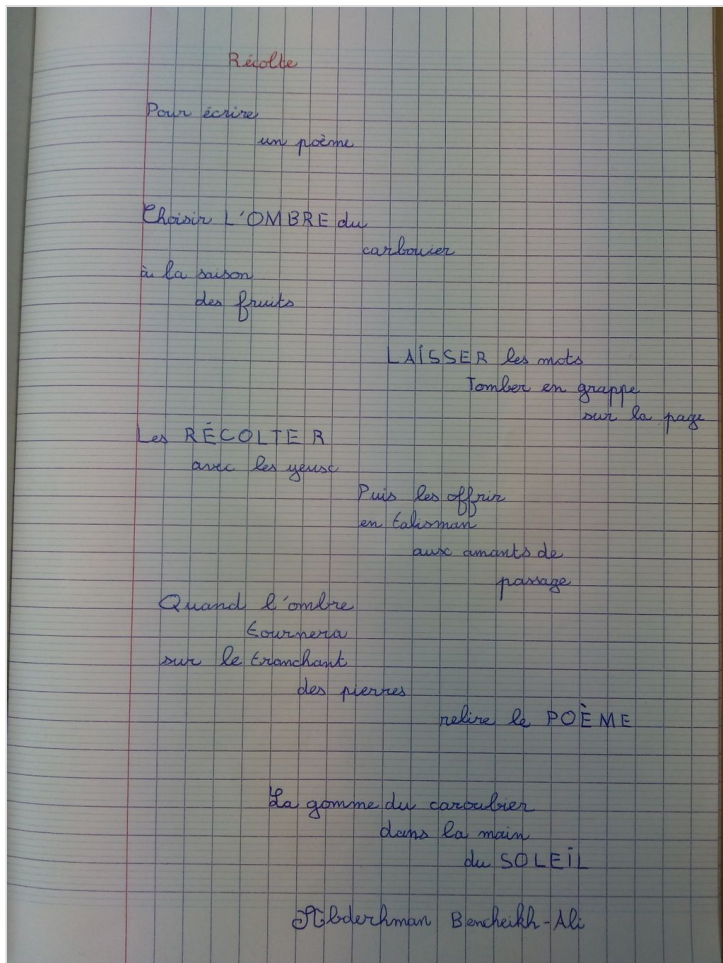 Récolte
Pour écrire
un poème
Choisir L'OMBRE du
carbouier
à la saison
des fruits
LAÏSSER les mots
Tomber en grappe
sur la page
Les RÉCOLTER
avec les yeux
Puis les offrir
en talisman
aux amants de
passage
Quand l'ombre
tournera
sur le tranchant
des pierres
relire le POÈME
La gomme du caroubier
dans la main
du SOLEIL
Abderhman Bencheikh-Ali